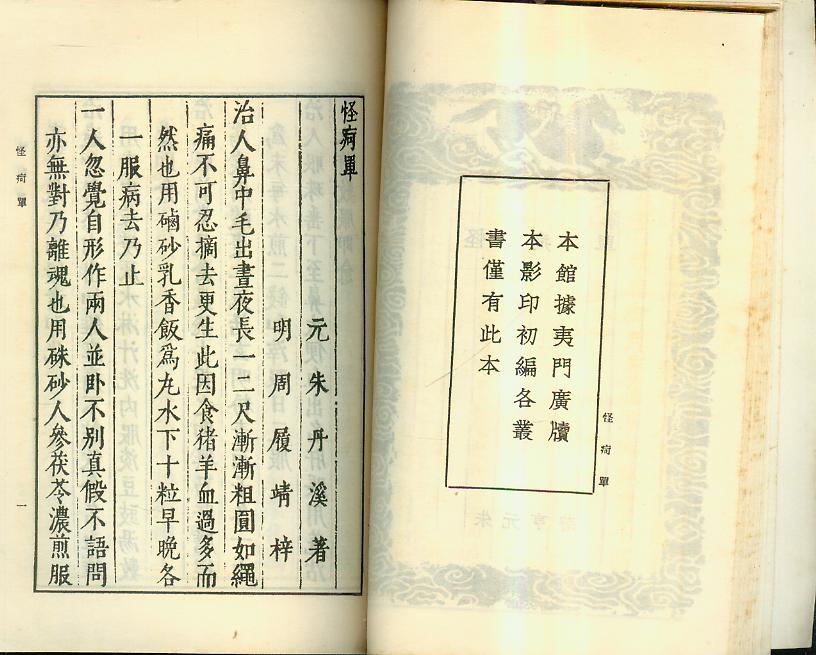 本館據夷門廣牘
本影印初編各叢
書僅有此本
怪疴單
怪疴單
元朱丹溪著
明周履靖梓
治人鼻中毛出晝夜長一二尺漸漸粗圓如繩
痛不可忍摘去更生此因食猪羊血過多而
然也用硇砂乳香飯爲丸水下十粒早晚各
一服病去乃止
一人忽覺自形作兩人並卧不别真假不語問
亦無對乃離魂也用硃砂人參茯苓濃煎服
怪疴單
一